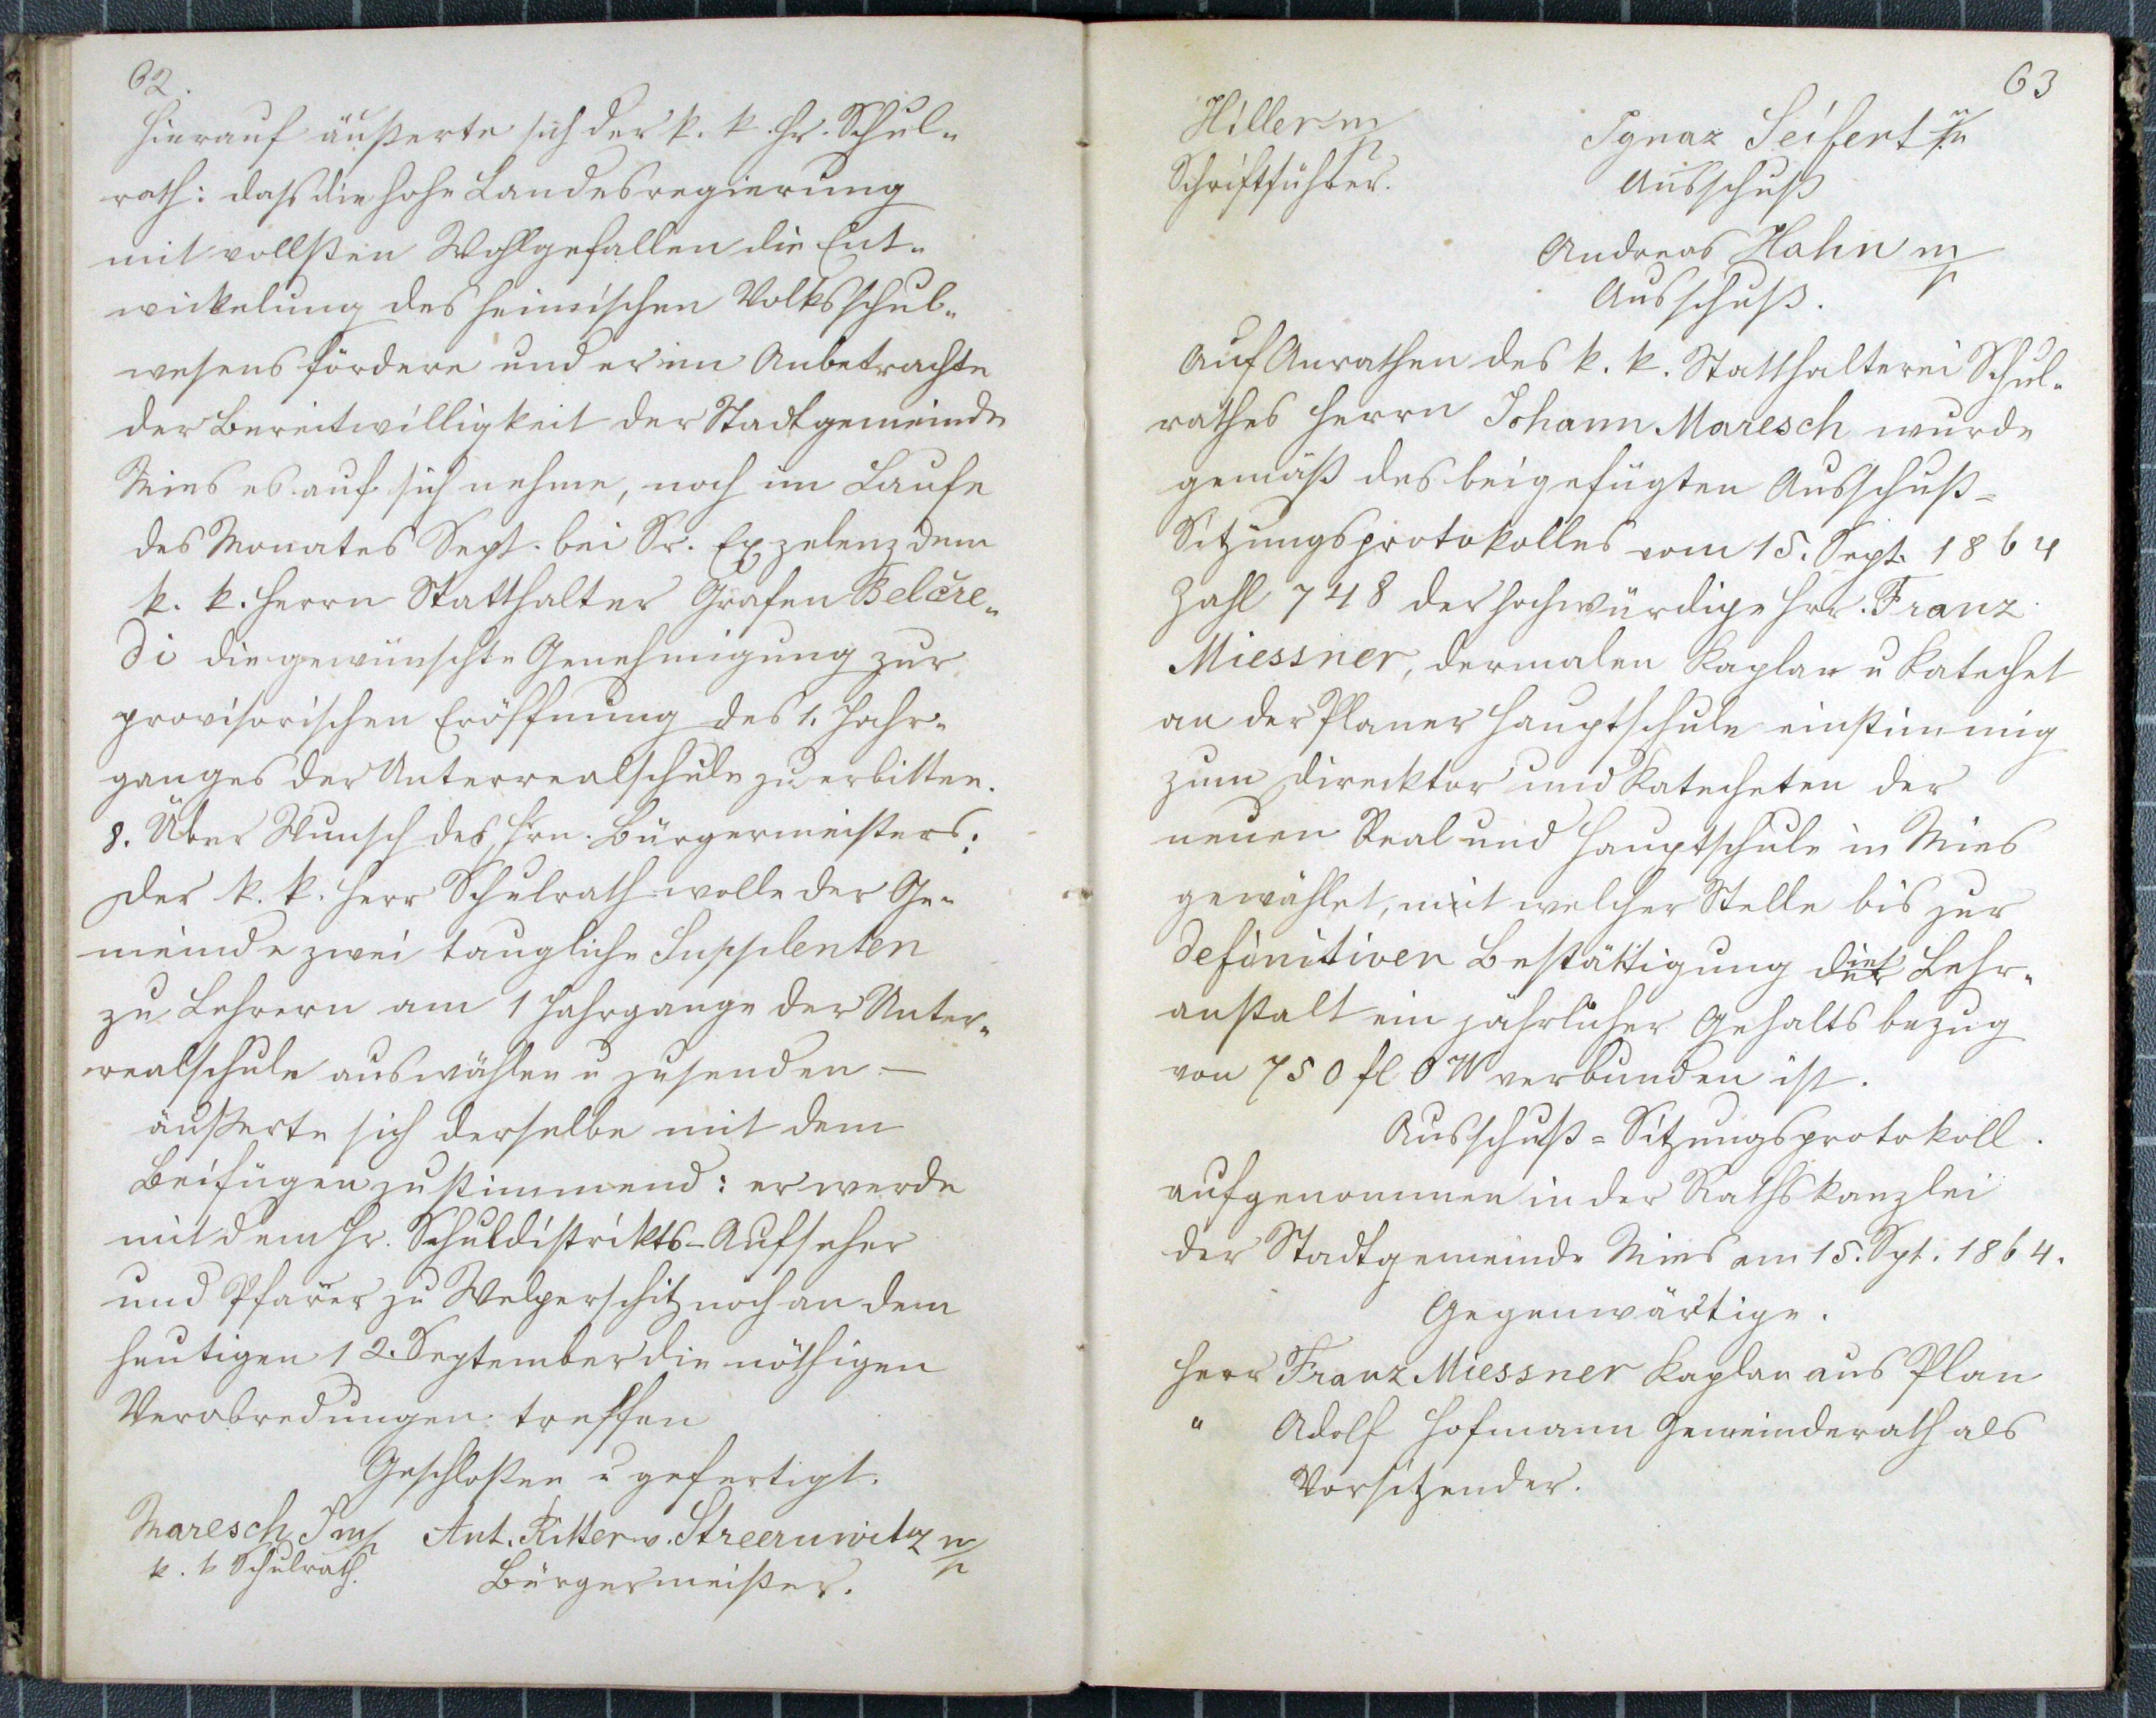 62.
Hierauf äußerte sich der k. k. Hr. Schul-
rath: daß die hohe Landesregierung
mit vollsten Wohlgefallen die Ent-
wickelung des heimischen Volksschul-
wesens fördere und er im Anbetrachte
der Bereitwilligkeit der Stadtgemeinde
Mies es auf sich nehme, noch im Laufe
des Monates Sept. bei Sr. Exzelenz dem
k. k. Herrn Statthalter Grafen Belcre-
di die gewünschte Genehmigung zur
provisorischen Eröffnung des 1. Jahr-
ganges der Unterrealschule zu erbitten.
8. Über Wunsch des Hrn. Bürgermeisters:
Der k. k. Herr Schulrath wolle der Ge-
meinde zwei taugliche Supplenten
zu Lehrern am 1 Jahrgange der Unter-
realschule auswählen u zusenden —
äußerte sich derselbe mit dem
Beifügen zustimmend: er werde
mit dem Hr. Schuldistrikts-Aufseher
und Pfarrer zu Welperschitz noch an dem
heutigen 12. September die nöthigen
Verabredungen treffen
Geschloßen u gefertigt.
Maresch J m/p Ant. Ritter v. Streeruwitz m/p
k. k Schulrath. Bürgermeister.
63
Hiller m/p Ignaz Seifert m/p
Schriftführer. Ausschuß
Andreas Hahn m/p
Ausschuß.
Auf Anrathen des k. k. Statthalterei Schul-
rathes Herrn Johann Maresch wurde
gemäß des beigefügten Ausschuß-
Sitzungsprotokolles vom 15. Sept. 1864
Zahl 748 der hochwürdige Hrr. Franz
Miessner, dermalen Kaplan u Katechet
an der Planer Hauptschule einstimmig
zum Direcktor und Katecheten der
neuen Real und Hauptschule in Mies
gewählet, mit welcher Stelle bis zur
definitiven Bestättigung der Lehr-
anstalt ein jährlicher Gehaltsbezug
von 750 fl ÖW verbunden ist.
Ausschuß-Sitzungsprotokoll.
aufgenommen in der Rathskanzlei
der Stadtgemeinde Mies am 15. Spt. 1864.
Gegenwärtige.
Herr Franz Miessner Kaplan aus Plan
" Adolf Hofmann Gemeinderath als
Vorsitzender.